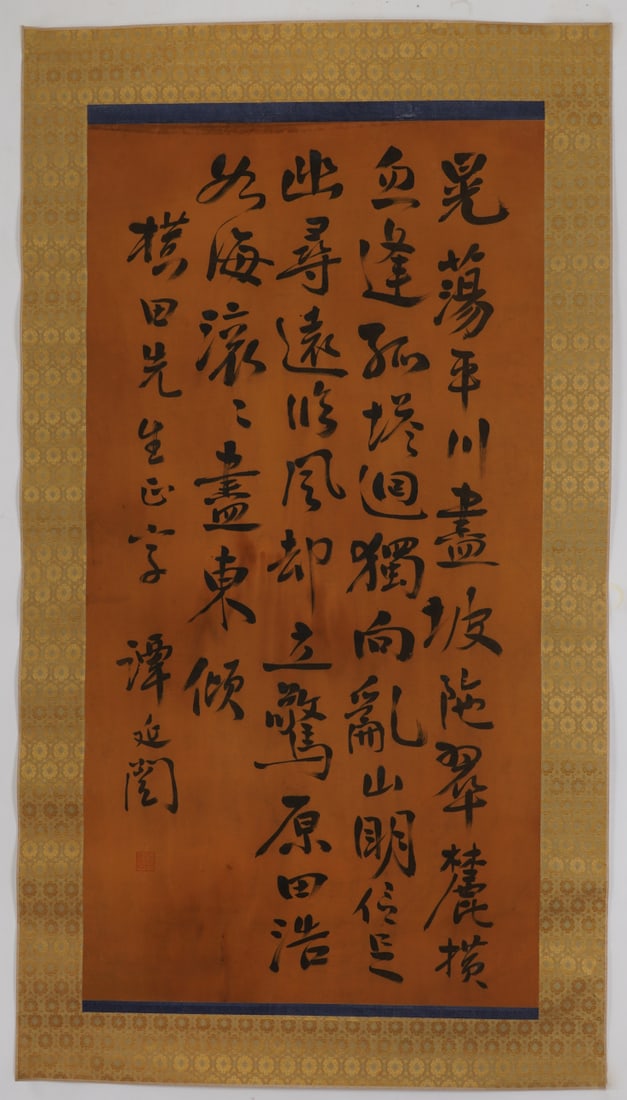 晃蕩平川盡坡陁翠麓横
忽逢孤塔逈獨向亂山明信足
幽尋遠臨風却立驚原田浩
如海滾々盡東傾
横田先生正字 譚延闓